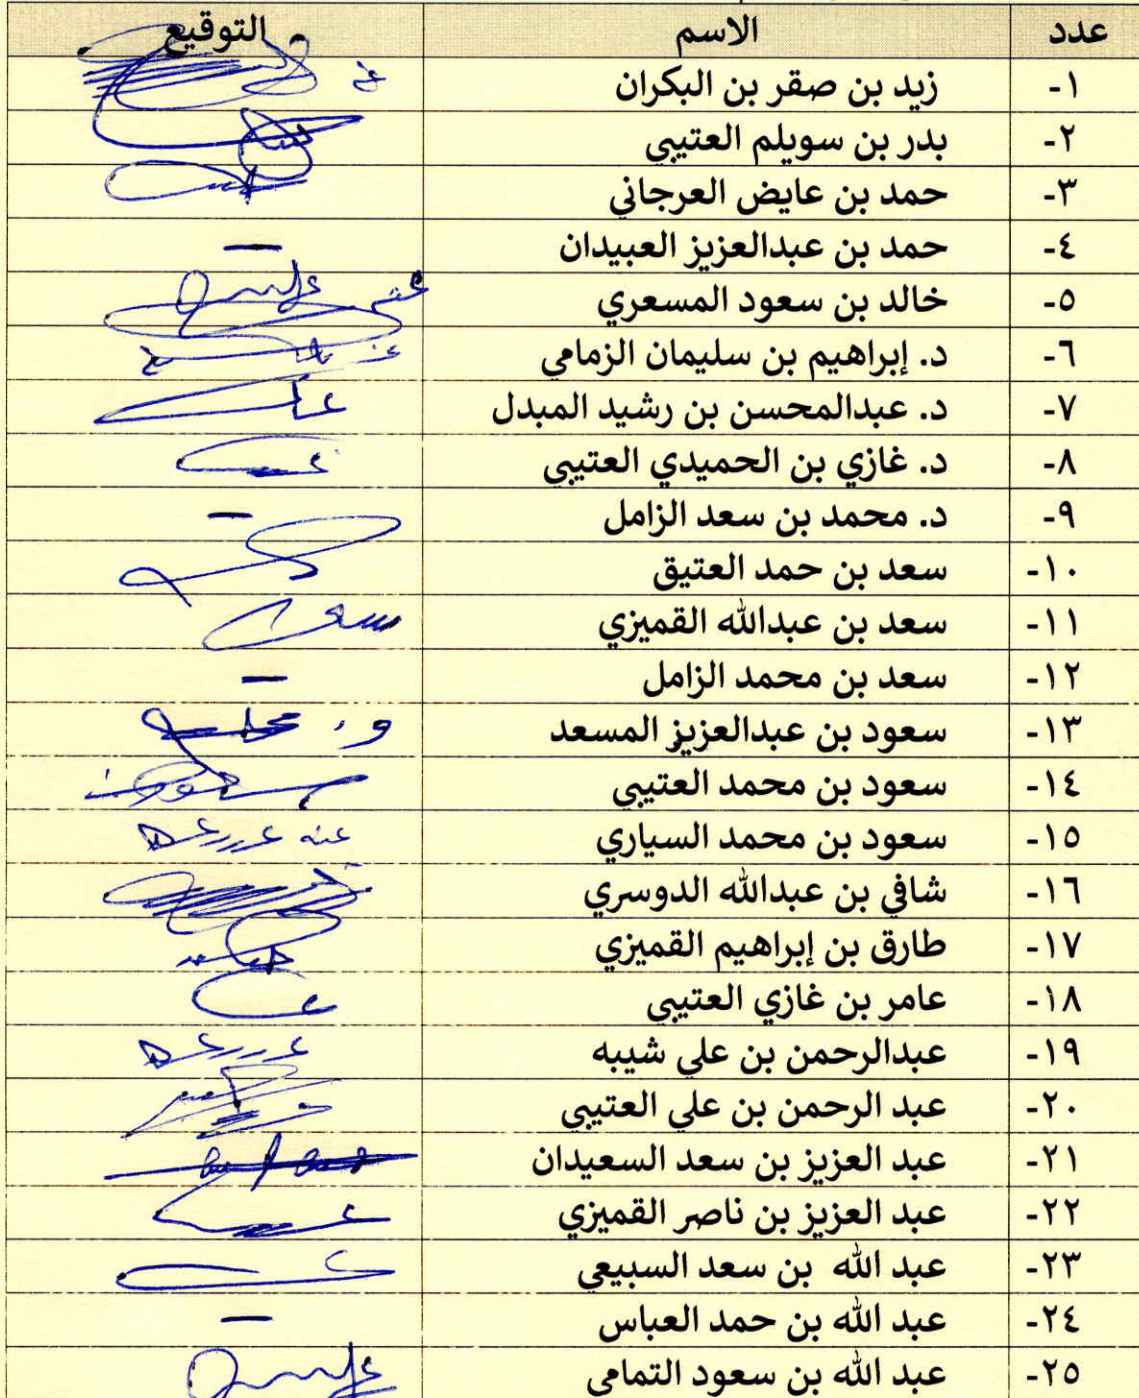 عدد الاسم التوقيع
١- زيد بن صقر بن البكران
٢- بدر بن سويلم العتيبي
٣- حمد بن عايض العرجاني
٤- حمد بن عبدالعزيز العبيدان –
٥- خالد بن سعود المسعري
٦- د. إبراهيم بن سليمان الزمامي
٧- د. عبدالمحسن بن رشيد المبدل
٨- د. غازي بن الحميدي العتيبي
٩- د. محمد بن سعد الزامل –
١٠- سعد بن حمد العتيق
١١- سعد بن عبدالله القميزي
١٢- سعد بن محمد الزامل –
١٣- سعود بن عبدالعزيز المسعد
١٤- سعود بن محمد العتيبي
١٥- سعود بن محمد السياري
١٦- شافي بن عبدالله الدوسري
١٧- طارق بن إبراهيم القميزي
١٨- عامر بن غازي العتيبي
١٩- عبدالرحمن بن علي شيبه
٢٠- عبد الرحمن بن علي العتيبي
٢١- عبد العزيز بن سعد السعيدان
٢٢- عبد العزيز بن ناصر القميزي
٢٣- عبد الله بن سعد السبيعي
٢٤- عبد الله بن حمد العباس –
٢٥- عبد الله بن سعود التمامي